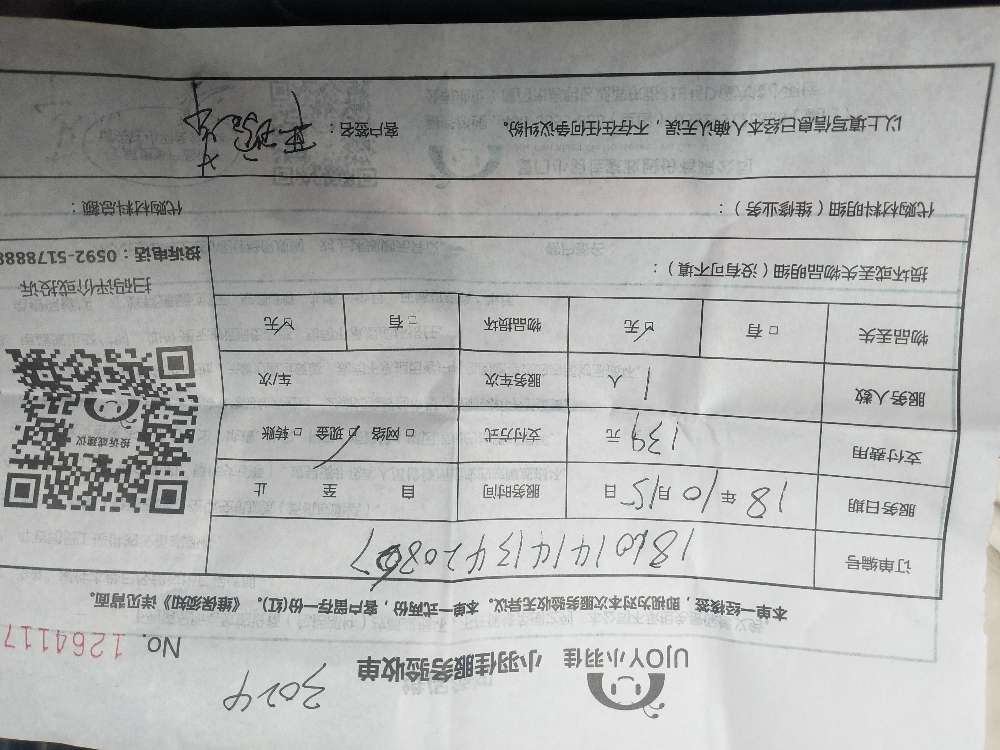 3024
UJOY小羽佳 小羽佳服务验收单
No. 1264117
本单一经接签，即视为对本次服务验收无异议。本单一式两份，客户留存一份(红)。《维保须知》详见背面。
订单编号
服务日期 18年10月15日 服务时间 自 至 止
支付费用 139元 支付方式 □网络 ☑现金 □转账
服务人数 1人 服务车次 车/次
物品丢失 □有 ☑无 物品损坏 □有 ☑无
损坏或丢失物品明细（没有可不填）：
投诉或建议
扫码评价或投诉
投诉电话：0592-5178888
代购材料明细（维修业务）：
代购材料总额：
以上填写信息已经本人确认无误，不存在任何争议纠纷。 客户签名：